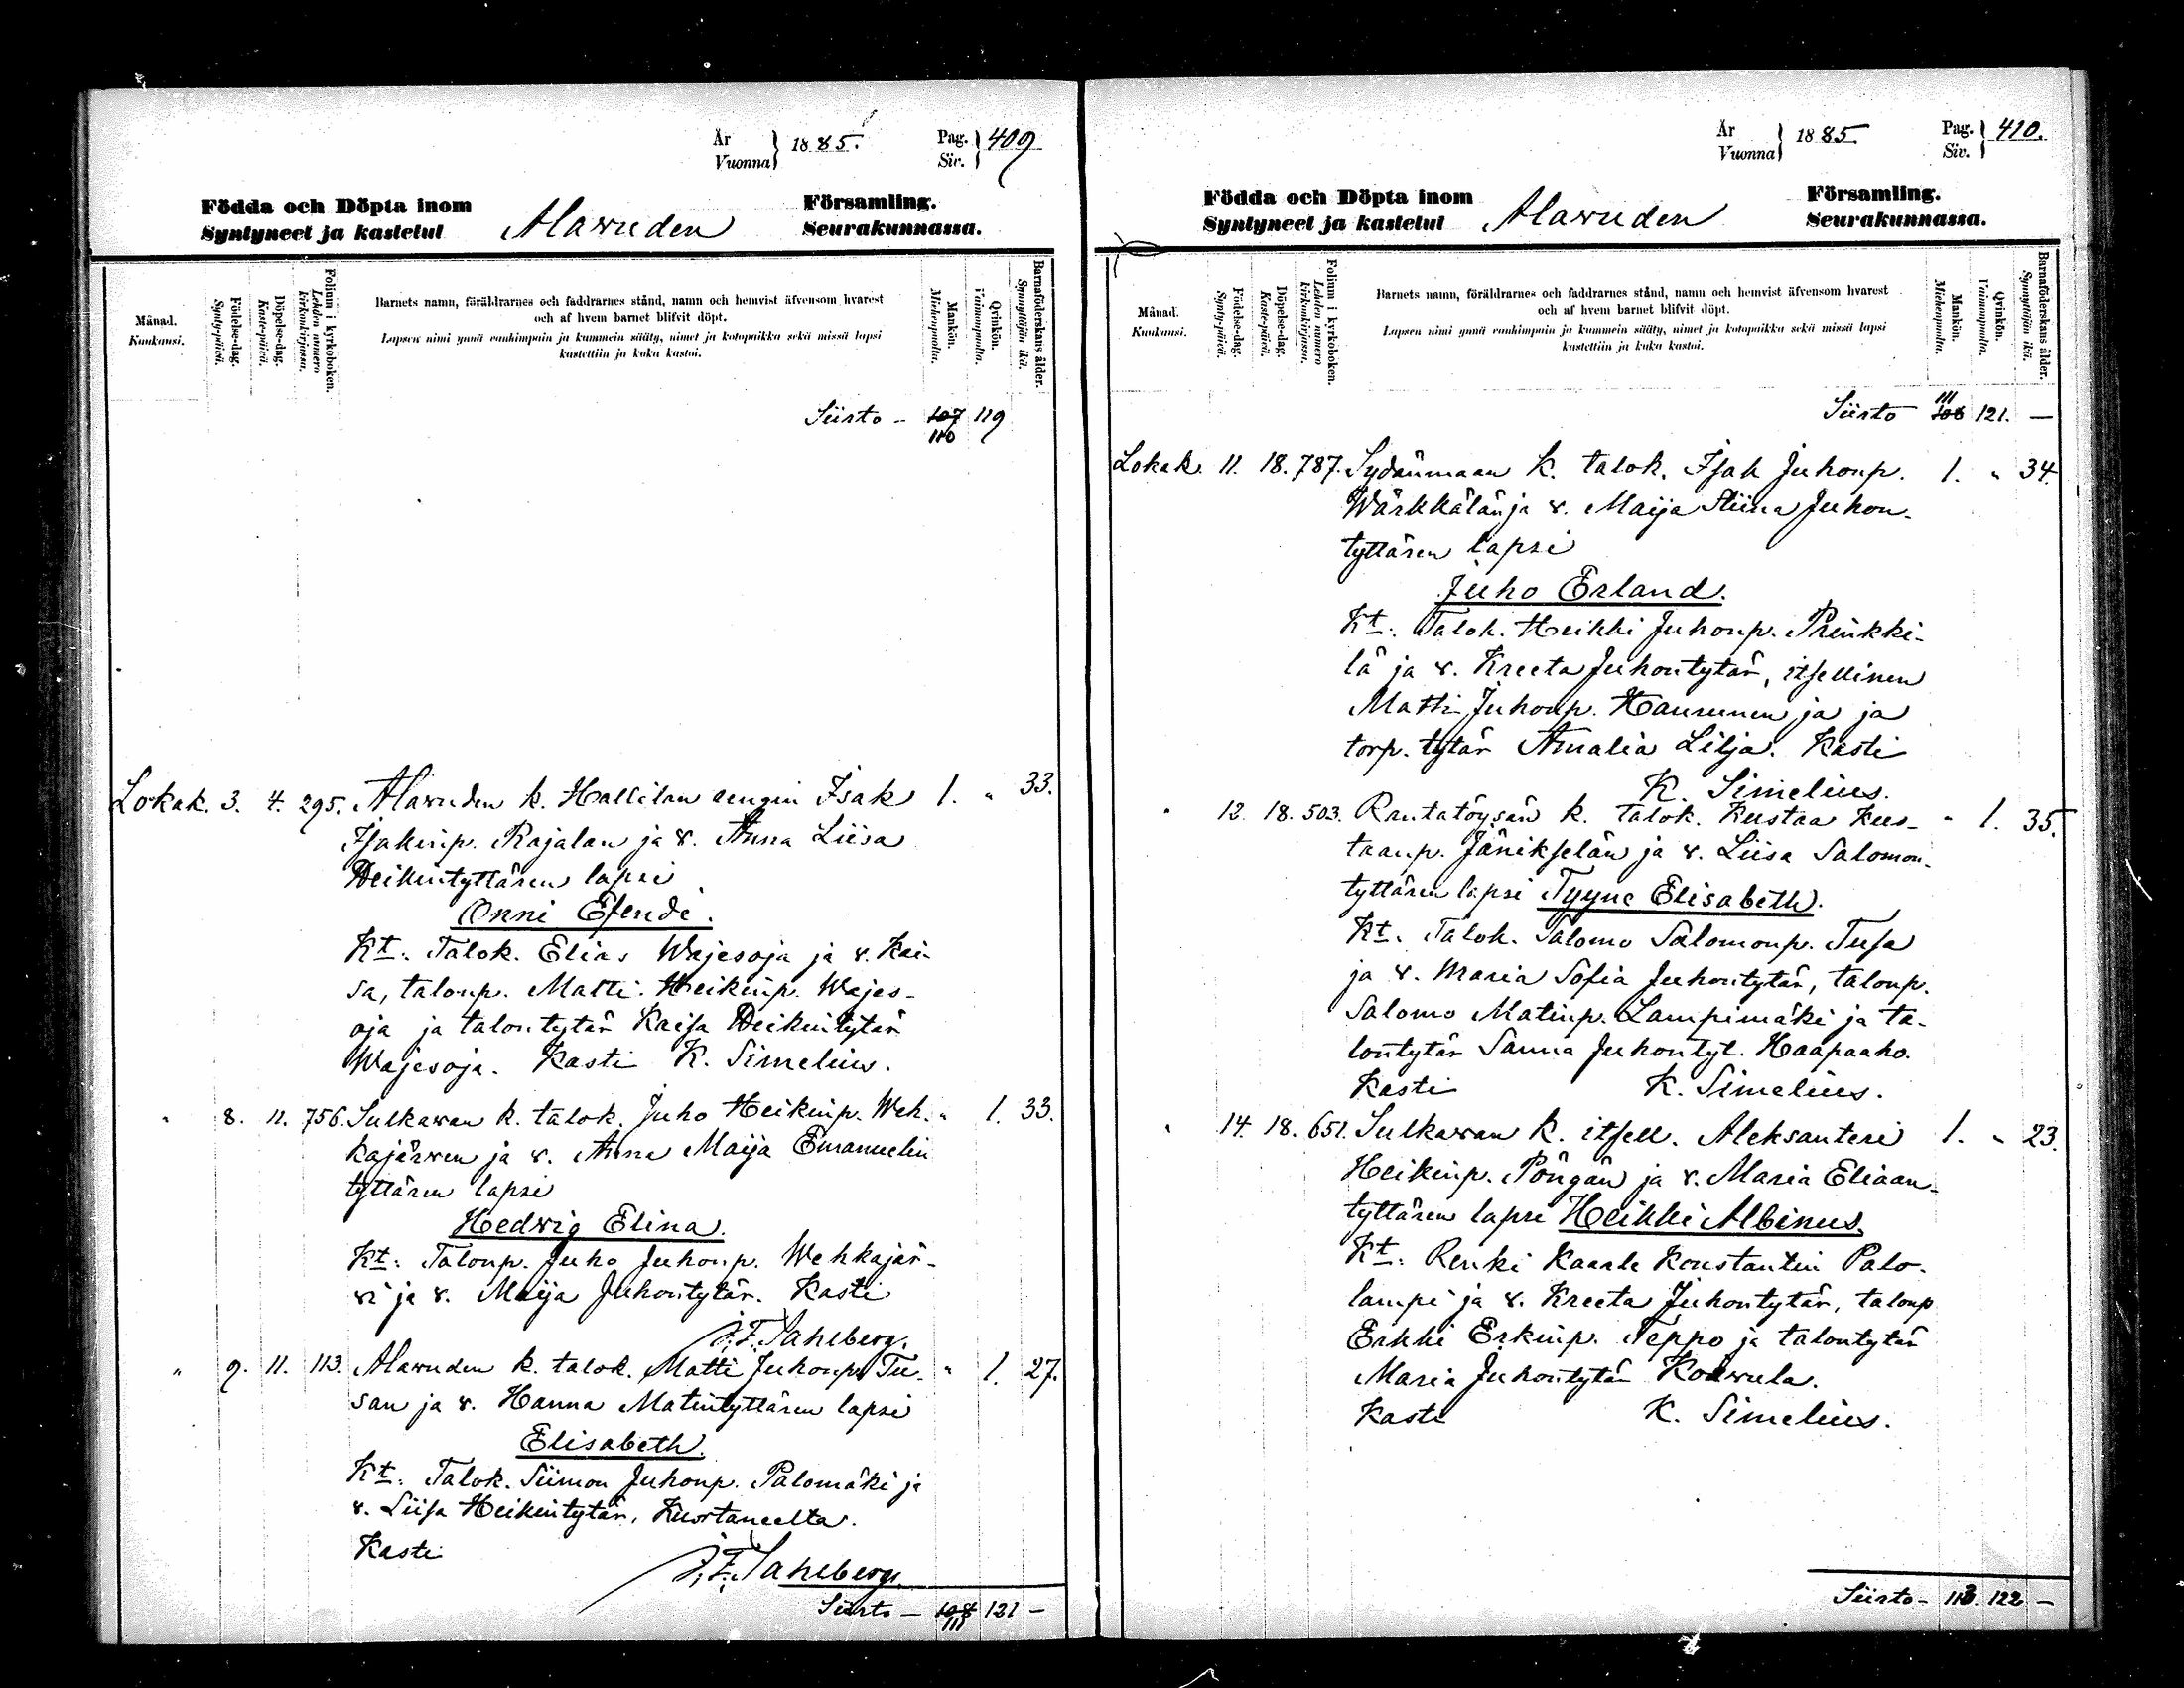 År
Vuonna } 1885. Pag.
Siv. } 409
Födda och Döpta inom Församling.
Syntyneet ja kastetut Alawuden Seurakunnassa.
Månad.
Kuukausi.
Födelse-dag.
Synty-päivä.
Döpelse-dag.
Kaste-päivä.
Folium i kyrkoboken.
Lehden numero
kirkonkirjassa.
Barnets namn, föräldrarnes och faddrarnes stånd, namn och hemvist äfvensom hvarest
och af hvem barnet blifvit döpt.
Lapsen nimi ynnä vanhimpain ja kummein sääty, nimet ja kotopaikka sekä missä lapsi
kastettiin ja kuka kastoi.
Mankön.
Miehenpuolta.
Qvinkön.
Vaimonpuolta.
Barnaföderskans ålder.
Synnyttäjän ikä.
Siirto - 107 119
110
Lokak. 3. 4. 295. Alawuden k. Hallilan rengin Isak 1. " 33.
Isakinp. Rajalan ja v. Anna Liisa
Heikintyttären lapsi
Onni Efendi.
Kt: Talok. Elias Wajesoja ja v. Kai-
sa, talonp. Matti Heikinp. Wajes-
oja ja talontytär Kaisa Heikintytär
Wajesoja. Kasti K. Simelius.
" 8. 11. 756. Sulkawan k. talok. Juho Heikinp. Weh- " 1. 33.
kajärwen ja v. Anna Maija Emanuelin
tyttären lapsi
Hedwig Elina.
Kt: Talonp. Juho Juhonp. Wehkajär-
vi ja v. Maija Juhontytär. Kasti
J. F. Sahlberg.
" 9. 11. 113. Alawuden k. talok. Matti Juhonp. Tu- " 1. 27.
san ja v. Hanna Matintyttären lapsi
Elisabeth.
Kt: Talok. Siimon Juhonp. Palomäki ja
v. Liisa Heikintytär, Kuortaneelta.
Kasti
J. F. Sahlberg.
Siirto - 108 121 -
111
År
Vuonna } 1885. Pag.
Siv. } 410.
Födda och Döpta inom Församling.
Syntyneet ja kastetut Alawuden Seurakunnassa.
Månad.
Kuukausi.
Födelse-dag.
Synty-päivä.
Döpelse-dag.
Kaste-päivä.
Folium i kyrkoboken.
Lehden numero
kirkonkirjassa.
Barnets namn, föräldrarnes och faddrarnes stånd, namn och hemvist äfvensom hvarest
och af hvem barnet blifvit döpt.
Lapsen nimi ynnä vanhimpain ja kummein sääty, nimet ja kotopaikka sekä missä lapsi
kastettiin ja kuka kastoi.
Mankön.
Miehenpuolta.
Qvinkön.
Vaimonpuolta.
Barnaföderskans ålder.
Synnyttäjän ikä.
111
Siirto 108 121. -
Lokak. 11. 18. 787. Sydänmaan k. talok. Isak Juhonp. 1. " 34.
Wärkkälän ja v. Maija Stiina Juhon-
tyttären lapsi
Juho Erland.
Kt: Talok. Heikki Juhonp. Prinkki-
lä ja v. Kreeta Juhontytär, itsellinen
Matti Juhonp. Haurunen ja ja
torp. tytär Amalia Lilja. Kasti
K. Simelius.
" 12. 18. 503. Rantatöysän k. talok. Kustaa Kus- " 1. 35.
taanp. Jänikselän ja v. Liisa Salomon-
tyttären lapsi Tyyne Elisabeth.
Kt: Talok. Salomo Salomonp. Tusa
ja v. Maria Sofia Juhontytär, talonp.
Salomo Matinp. Lampimäki ja ta-
lontytär Sanna Juhontyt. Haapaaho.
Kasti K. Simelius.
" 14. 18. 651. Sulkawan k. itsell. Aleksanteri 1. " 23.
Heikinp. Pöngän ja v. Maria Eliaan-
tyttären lapsi Heikki Albinus.
Kt: Renki Kaarle Konstantin Palo-
lampi ja v. Kreeta Juhontytär, talonp
Erkki Erkinp. Teppo ja talontytär
Maria Juhontytär Koiwula.
Kasti K. Simelius.
Siirto - 113. 122 -